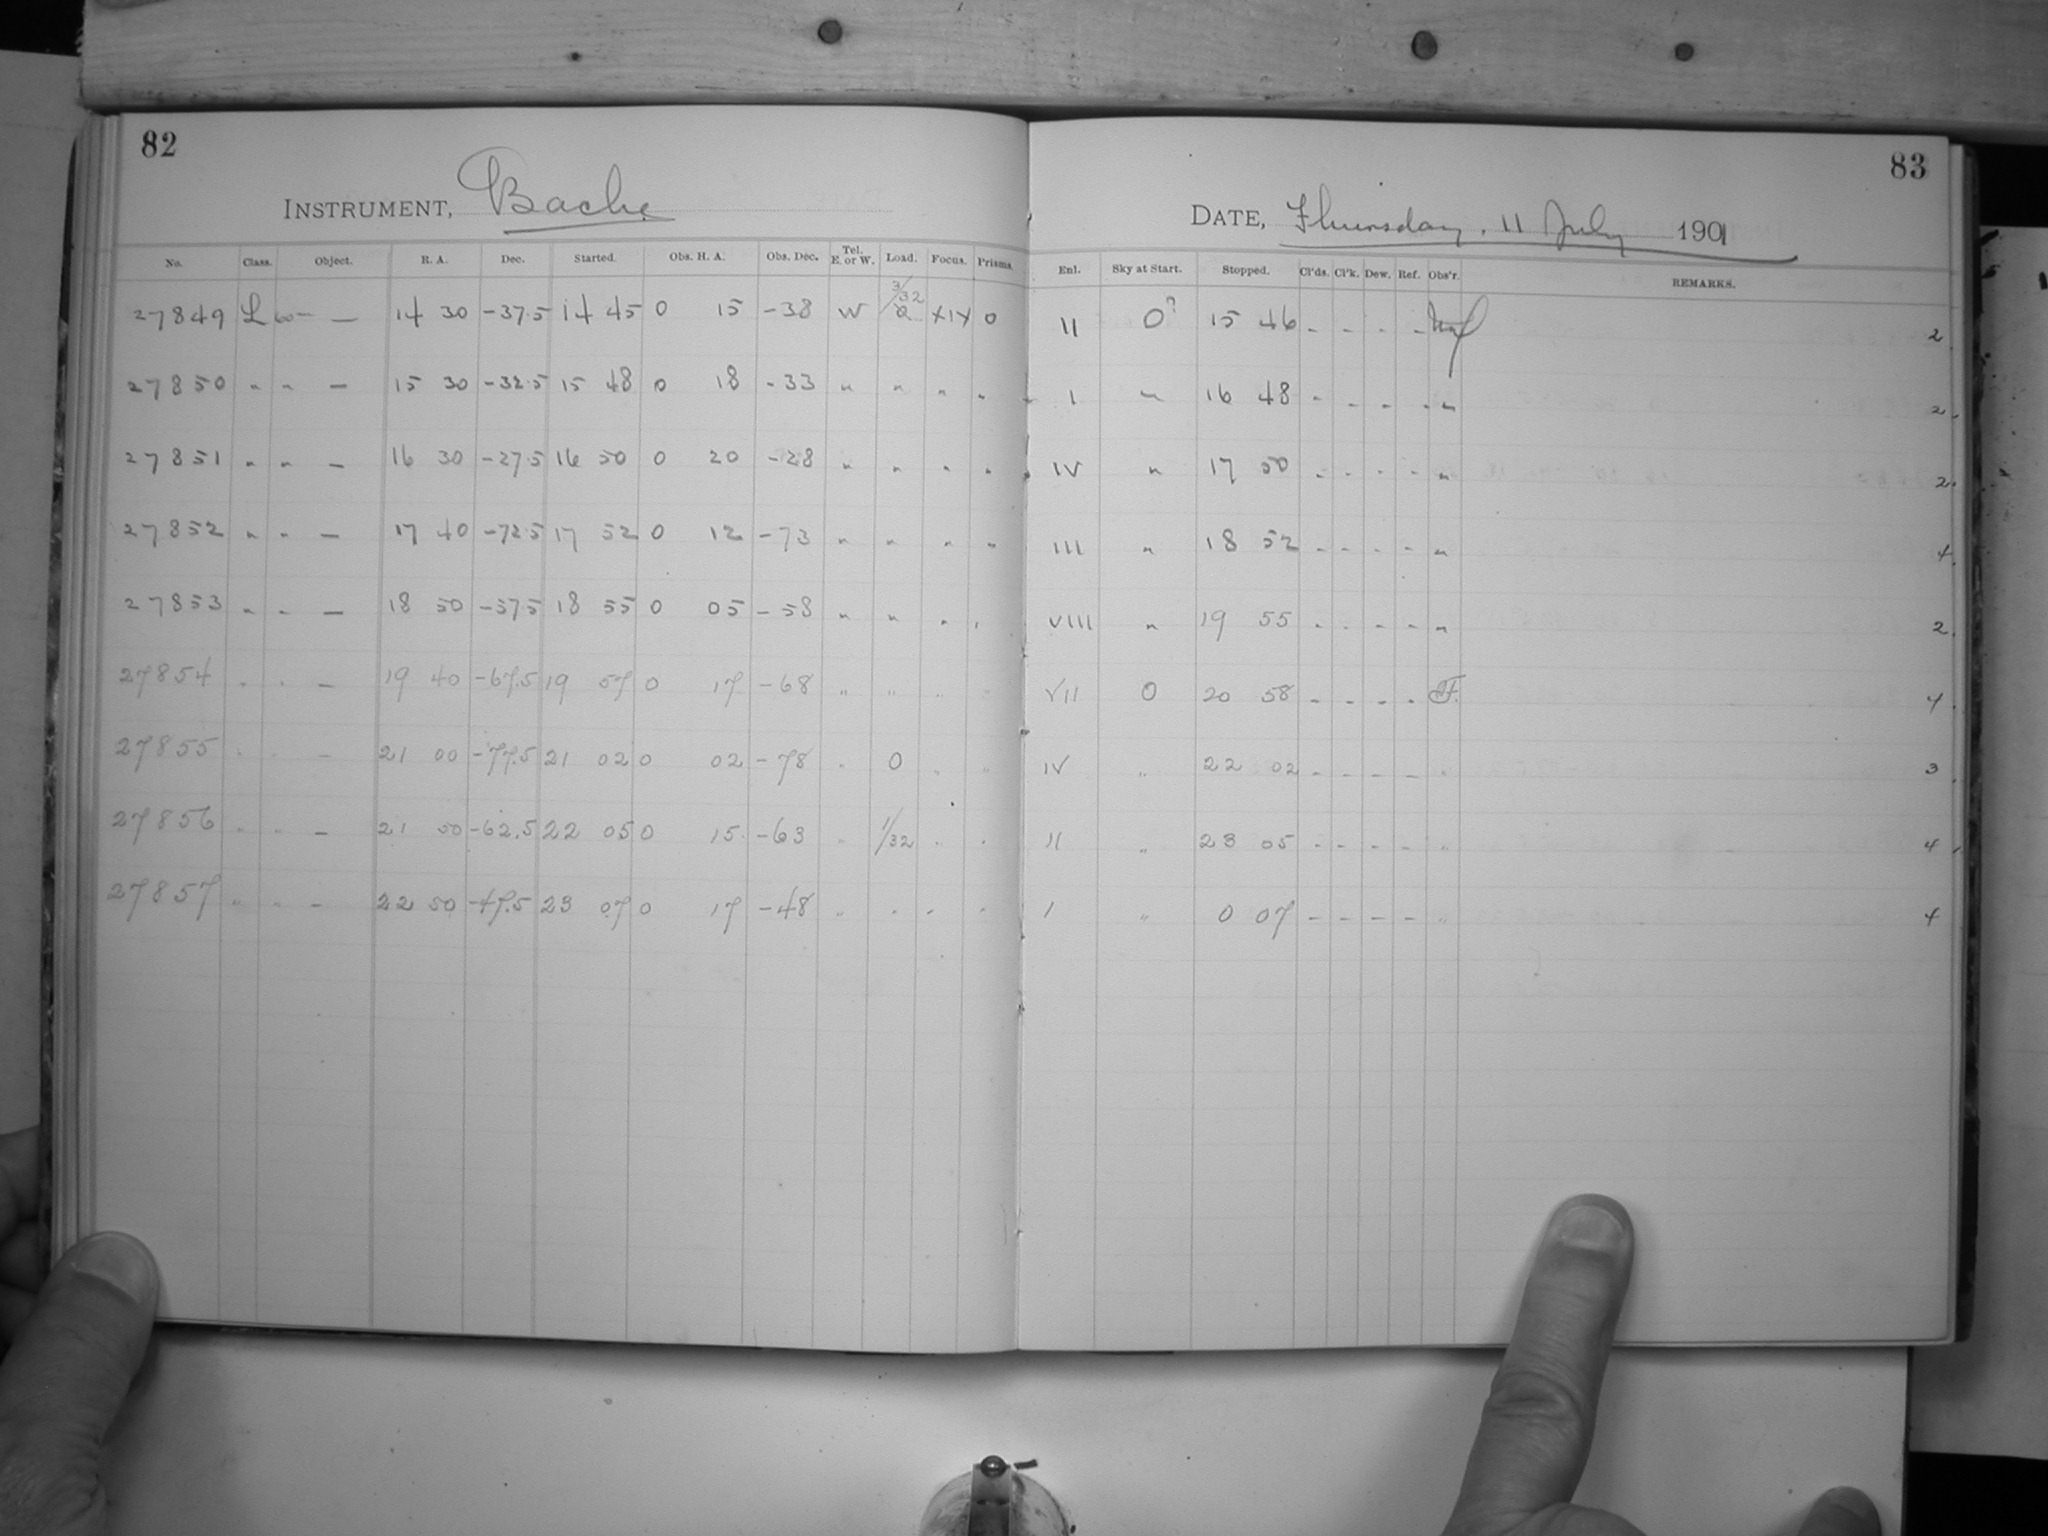 82
INSTRUMENT, Bache
No. Class. Object. R. A. Dec. Started. Obs. H. A. Obs. Dec. Tel. E. or W. Load. Focus. Prisms.
27849 L 60 — — 14 30 -37.5 14 45 0 15 -38 W 3/32 XIV 0
27850 " " — 15 30 -32.5 15 48 0 18 -33 " " " "
27851 " " — 16 30 -27.5 16 50 0 20 -28 " " " "
27852 " " — 17 40 -72.5 17 52 0 12 -73 " " " "
27853 " " — 18 50 -57.5 18 55 0 05 -58 " " " "
27854 " " — 19 40 -67.5 19 57 0 17 -68 " " " "
27855 " " — 21 00 -77.5 21 02 0 02 -78 " 0 " "
27856 " " — 21 50 -62.5 22 05 0 15 -63 " 1/32 " "
27857 " " — 22 50 -47.5 23 07 0 17 -48 " " " "
83
DATE, Thursday, 11 July 1901
Enl. Sky at Start. Stopped. Cl'ds. Cl'k. Dew. Ref. Obs'r. REMARKS.
II 0? 15 46 - - - - 2
I " 16 48 - - - - " 2
IV " 17 50 - - - - " 2
III " 18 52 - - - - " 4
VIII " 19 55 - - - - " 2
VII 0 20 58 - - - - F. 4
IV " 22 02 - - - - " 3
II " 23 05 - - - - " 4
I " 0 07 - - - - " 4